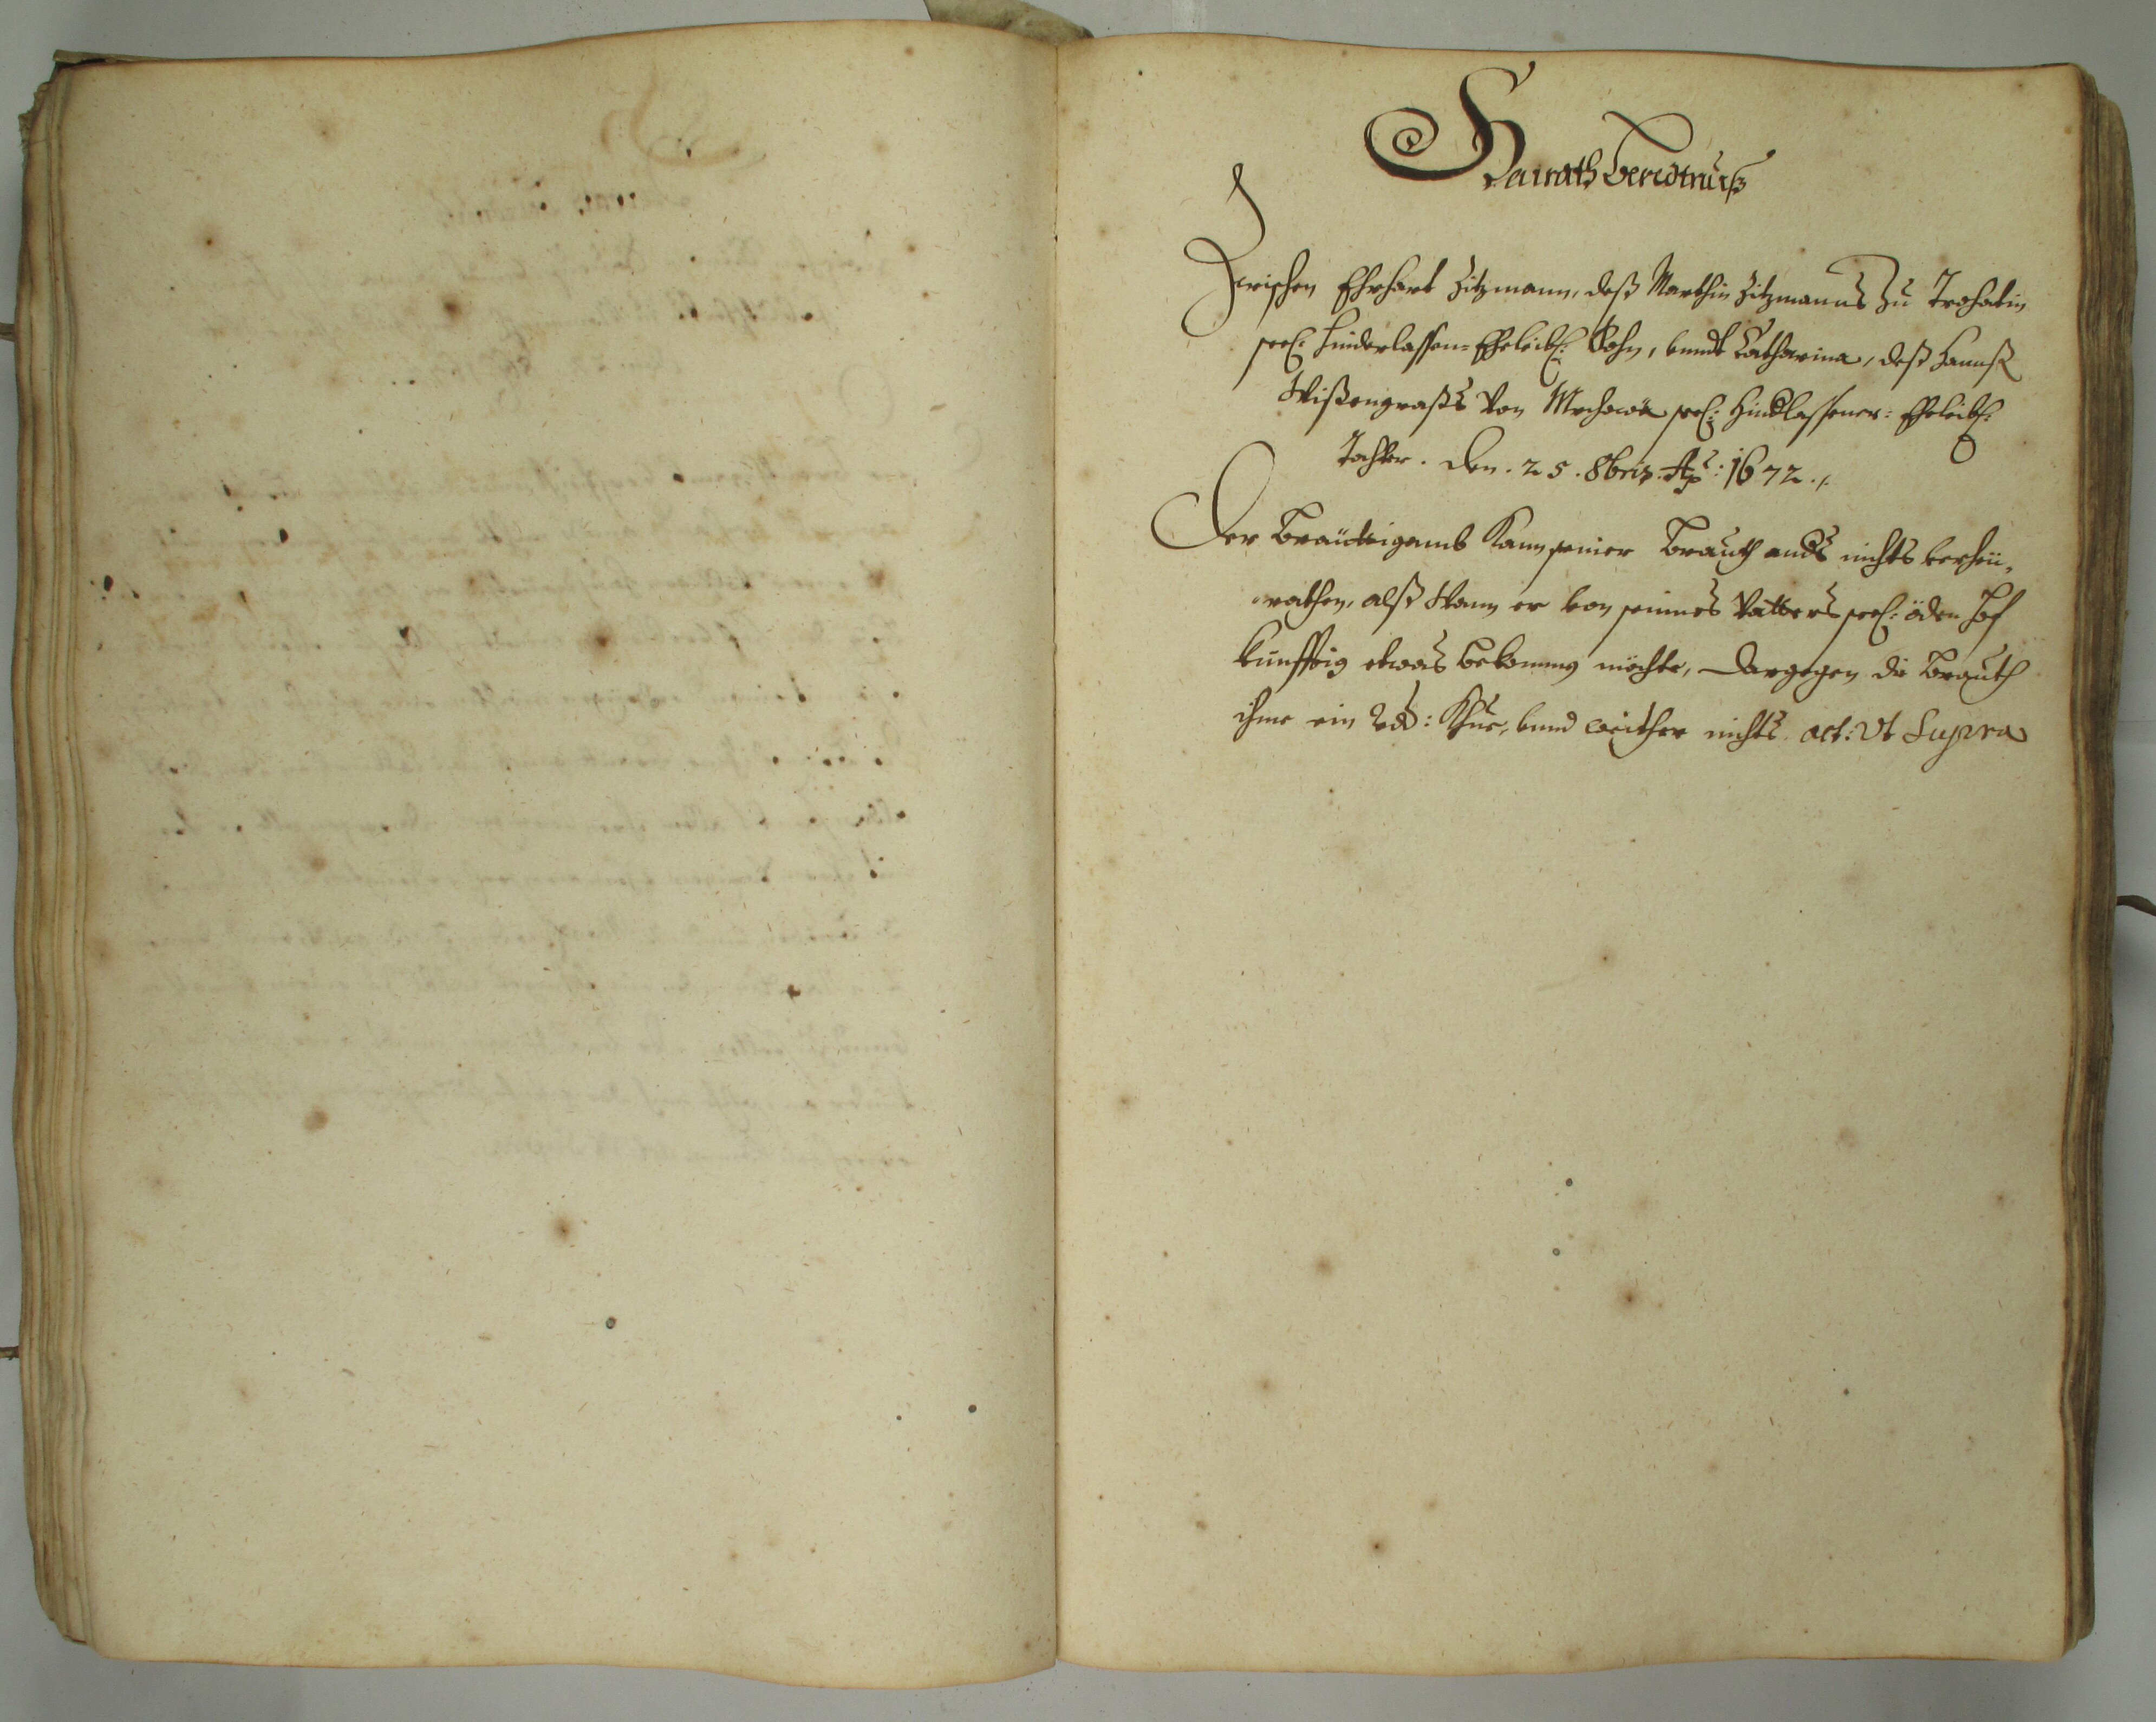 Heirath beredtnuß
Zwischen Ehrhart Zitzmann, deß Marthin Zitzmanns zu Trohatin
seel: hinderlassen- Eheleibl: Sohn, unndt Catharina, deß Hannß
Wißengraß von seel: hindlassener: Eheleibl:
Tochter. den. 25. 8bris. Ao: 1672.
Der Bräutigamb Kann seiner Brauth andß nichts verheü,,
rathen, alß Wann er von seines Vatters seel: öden Hof
künfftig etwas bekommen möchte, dargegen die Brauth
ihme ein Khue, unnd weither nichts. act: Vt Supra